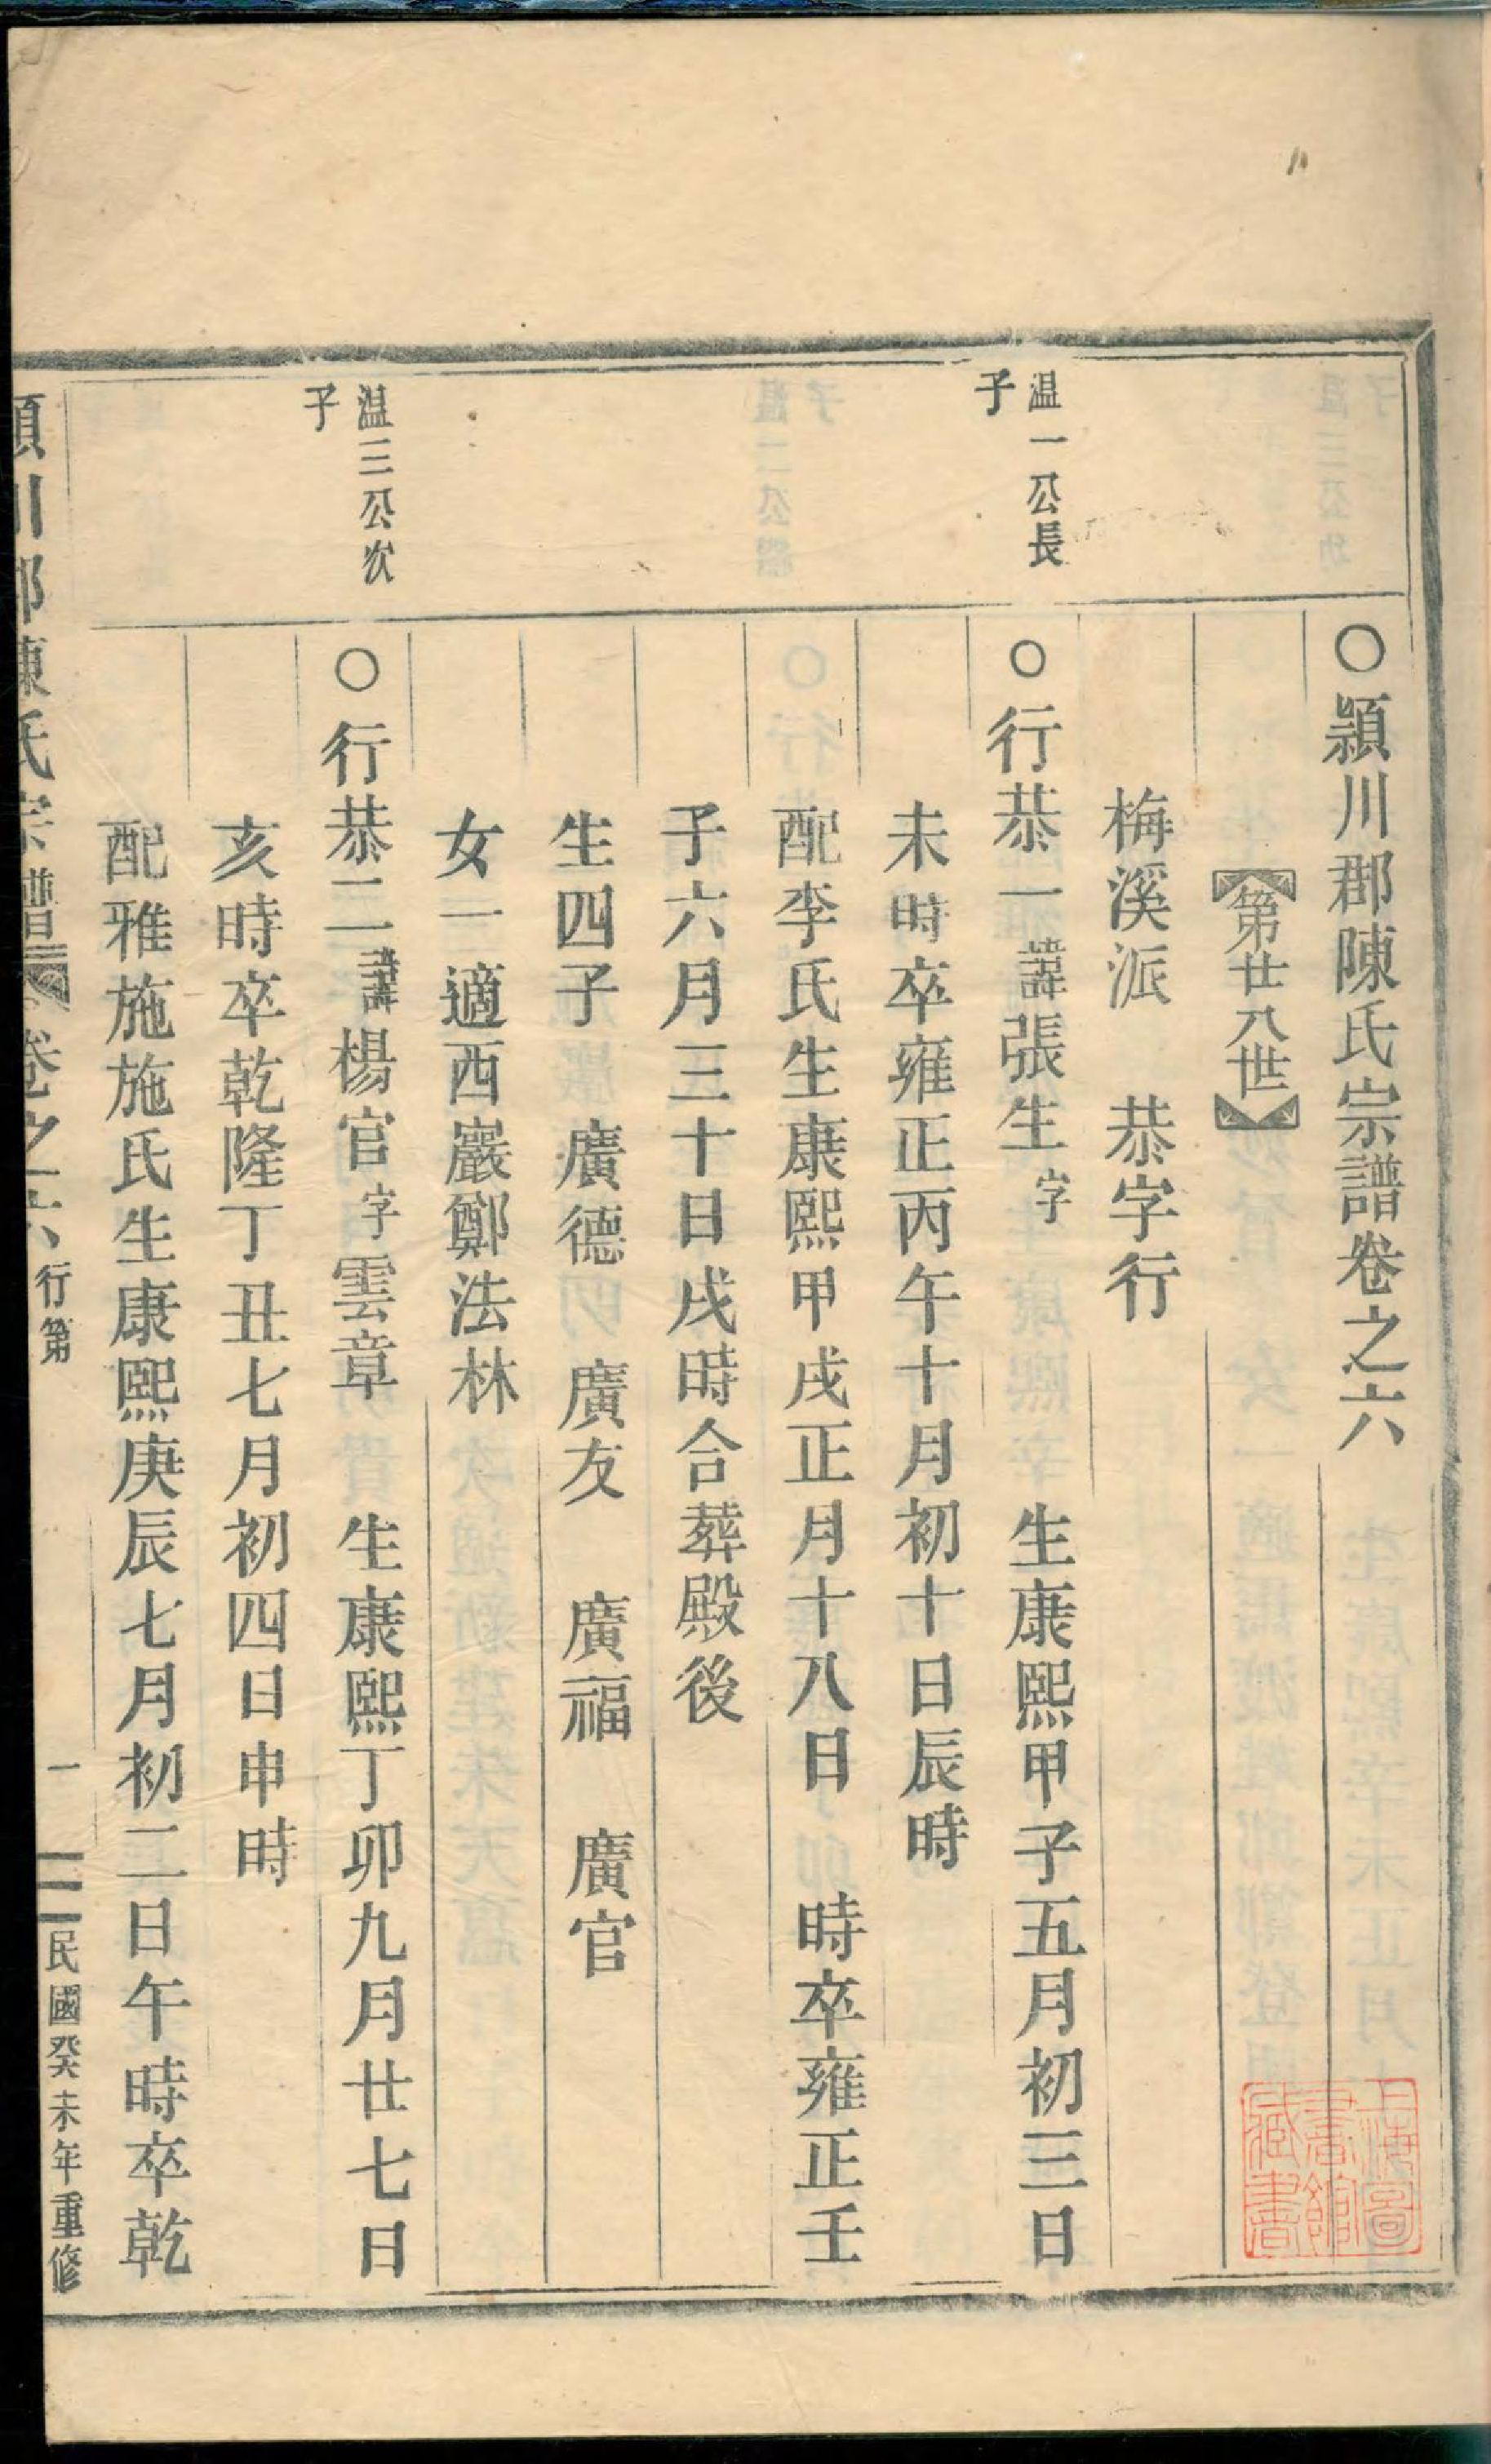 ○潁川郡陳氏宗譜卷之六
第廿八世
梅溪派 恭字行
温一公長
子
○行恭一諱張生字 生康熙甲子五月初三日
未時卒雍正丙午十月初十日辰時
配李氏生康熙甲戌正月十八日 時卒雍正壬
子六月三十日戌時合葬殿後
生四子 廣德 廣友 廣福 廣官
女一適西巖鄭法林
温三公次
子
○行恭二諱楊官字雲章 生康熙丁卯九月廿七日
亥時卒乾隆丁丑七月初四日申時
配雅施施氏生康熙庚辰七月初二日午時卒乾
潁川郡陳氏宗譜 卷之六 行第 一 民國癸未年重修
上海圖
書館
藏書